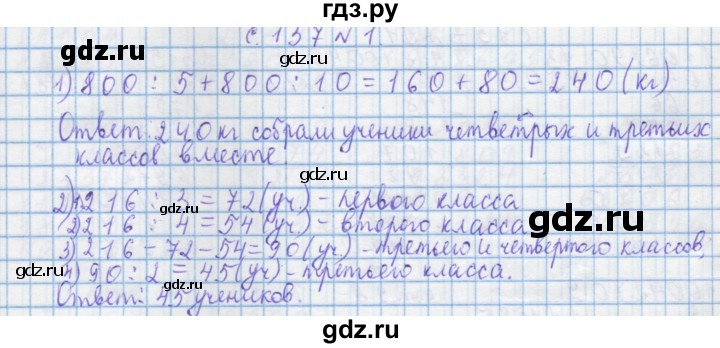 гдз.ру
с. 137 № 1.
1) 800 : 5 + 800 : 10 = 160 + 80 = 240 (кг)
Ответ: 240 кг собрали ученики четвертых и третьих
классов вместе.
2) 1) 216 : 3 = 72 (уч) - первого класса
2) 216 : 4 = 54 (уч) - второго класса
3) 216 - 72 - 54 = 90 (уч) - третьего и четвертого классов,
4) 90 : 2 = 45 (уч) - третьего класса.
Ответ: 45 учеников.
gdz.ru
gdz.ru
gdz.ru
gdz.ru
gdz.ru
gdz.ru
gdz.ru
gdz.ru